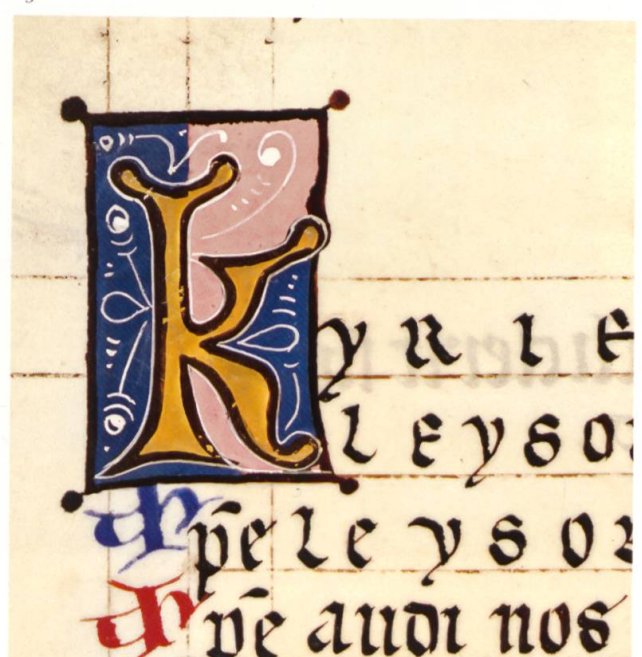 KYRIE
LEYSO
xp̄eleyso
xp̄e audi nos